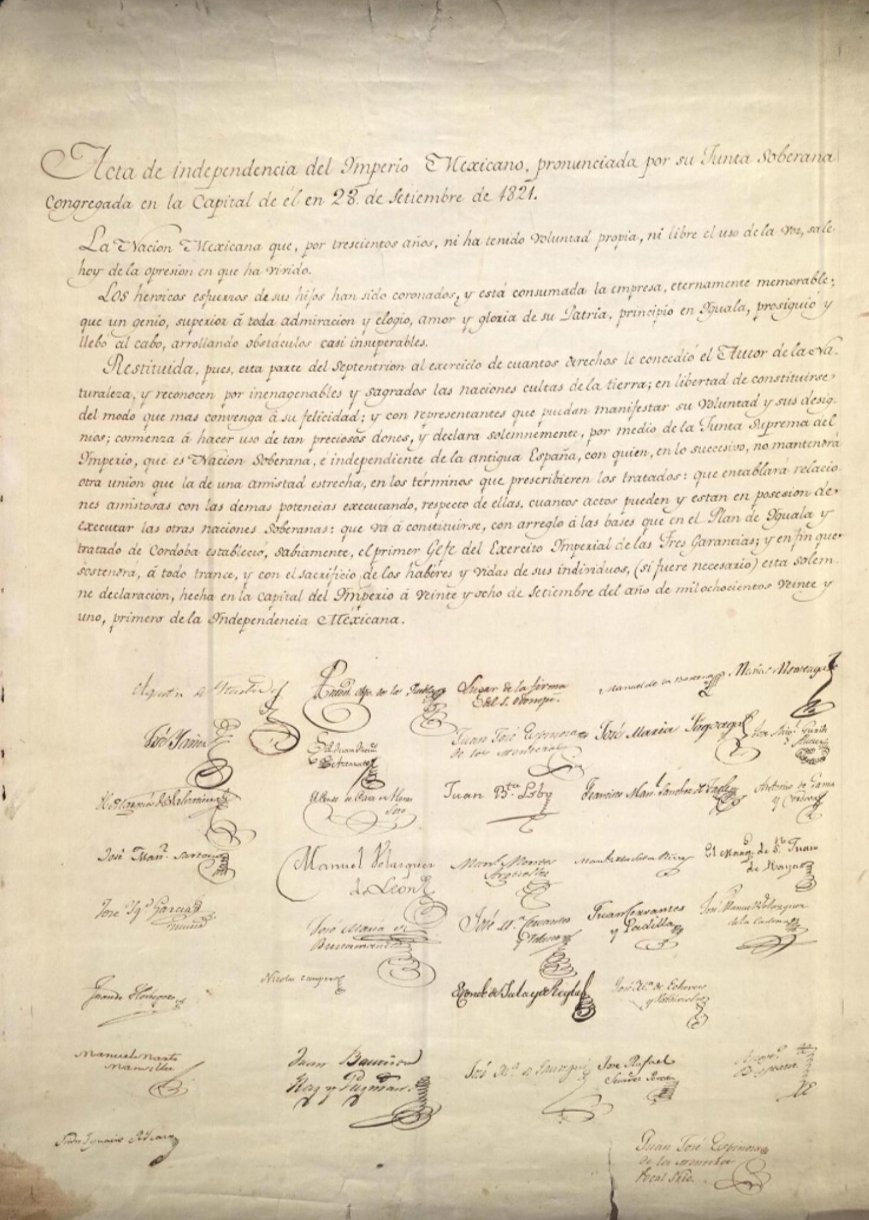 Acta de independencia del Imperio Mexicano, pronunciada por su Junta Soberana
congregada en la Capital de él en 28 de Setiembre de 1821.
La Nacion Mexicana que, por trescientos años, ni ha tenido voluntad propia, ni libre el uso de la voz, sale
hoy de la opresion en que ha vivido.
Los heroicos esfuerzos de sus hijos han sido coronados, y está consumada la empresa, eternamente memorable,
que un genio, superior á toda admiracion y elogio, amor y gloria de su Patria, principió en Iguala, prosiguió y
llebó al cabo, arrollando obstáculos casi insuperables.
Restituida, pues, esta parte del Septentrion al exercicio de cuantos derechos le concedió el Autor de la Na-
turaleza, y reconocen por inenagenables y sagrados las naciones cultas de la tierra; en libertad de constituirse
del modo que mas convenga á su felicidad; y con representantes que puedan manifestar su voluntad y sus desig-
nios; comienza á hacer uso de tan preciosos dones, y declara solemnemente, por medio de la Junta Suprema del
Imperio, que es Nacion Soberana, é independiente de la antigua España, con quien, en lo succesivo, no mantendrá
otra union que la de una amistad estrecha, en los términos que prescribieren los tratados: que entablará relacio-
nes amistosas con las demas potencias executando, respecto de ellas, cuantos actos pueden y estan en posesion de
executar las otras naciones Soberanas: que vá á constituirse, con arreglo á las bases que en el Plan de Iguala y
tratado de Cordoba establecio, sabiamente, el primer Gefe del Exercito Imperial de las Tres Garancias; y en fin que
sostendrá, á todo trance, y con el sacrificio de los haberes y vidas de sus individuos, (si fuere necesario) esta solem-
ne declaracion, hecha en la capital del Imperio á veinte y ocho de Setiembre del año de mil ochocientos veinte y
uno, primero de la Independencia Mexicana.
Agustin de Lugar de la firma Manuel de la Barcena Matias Monteagudo
del S.
José Yañez Juan José Espinosa José Maria Fagoaga
de los Monteros
Juan Bta. Lobo Francisco Manl. Sanchez de Tagle Antonio de Gama
y Cordova
José Manl. Sartorio Manuel Velazquez El Marq. de S. Juan
de Leon de Rayas
José Ign. Garcia José Maria de Juan Cervantes José Manuel Velazquez
Bustamante y Padilla de la Cadena
Juan de Horbegoso Nicolas El Conde de Jala y de Regla José Ma. de Echevers
Manuel Juan José Rafael
Juan José Espinosa
de los Monteros